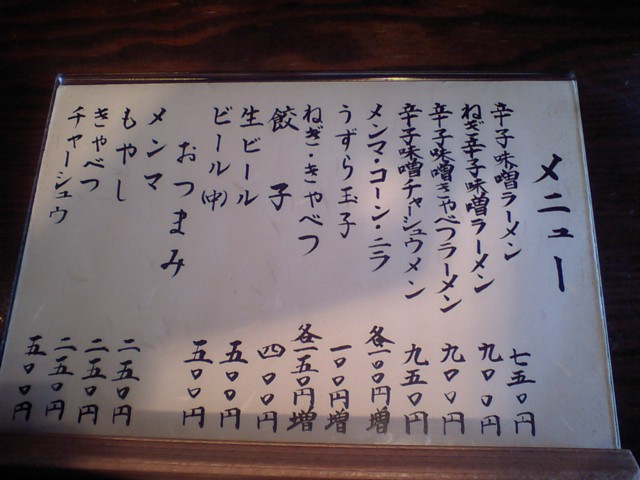 メニュー
辛子味噌ラーメン 七五〇円
ねぎ辛子味噌ラーメン 九〇〇円
辛子味噌きゃべつラーメン 九〇〇円
辛子味噌チャーシュウメン 九五〇円
メンマ・コーン・ニラ 各一〇〇円増
うずら玉子 一〇〇円増
ねぎ・きゃべつ 各一五〇円増
餃子 四〇〇円
生ビール 五〇〇円
ビール(中) 五〇〇円
おつまみ
メンマ 二五〇円
もやし 二五〇円
きゃべつ 二五〇円
チャーシュウ 五〇〇円